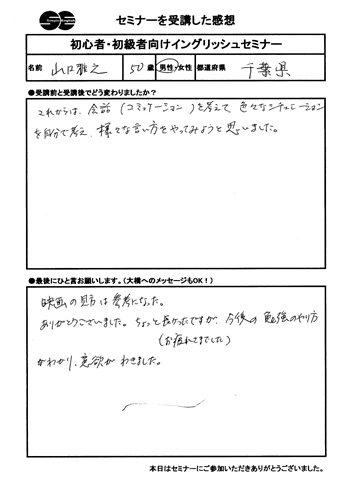 セミナーを受講した感想
初心者・初級者向けイングリッシュセミナー
名前 山口雅之 50歳 男性・女性 都道府県 千葉県
●受講前と受講後でどう変わりましたか？
これからは、会話（コミュケーション）を考えて、色々なシチュエーション
を自分で考え、様々な言い方をやってみようと思いました。
●最後にひと言お願いします。（大橋へのメッセージもOK！）
映画の見方は参考になった。
ありがとうございました。ちょっと長かったですが、今後の勉強のやり方
（お疲れさまでした）
がわかり、意欲がわきました。
本日はセミナーにご参加いただきありがとうございました。